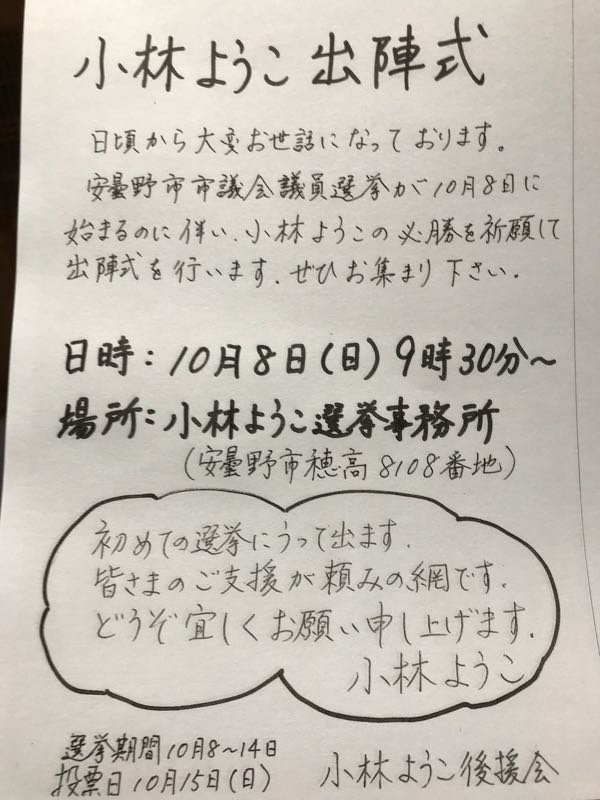 小林ようこ出陣式
日頃から大変お世話になっております。
安曇野市市議会議員選挙が10月8日に
始まるのに伴い、小林ようこの必勝を祈願して
出陣式を行います。ぜひお集まり下さい。
日時：10月8日(日)9時30分～
場所：小林ようこ選挙事務所
(安曇野市穂高8108番地)
初めての選挙にうって出ます。
皆さまのご支援が頼みの網です。
どうぞ宜しくお願い申し上げます。
小林ようこ
選挙期間10月8～14日
投票日10月15日(日)
小林ようこ後援会